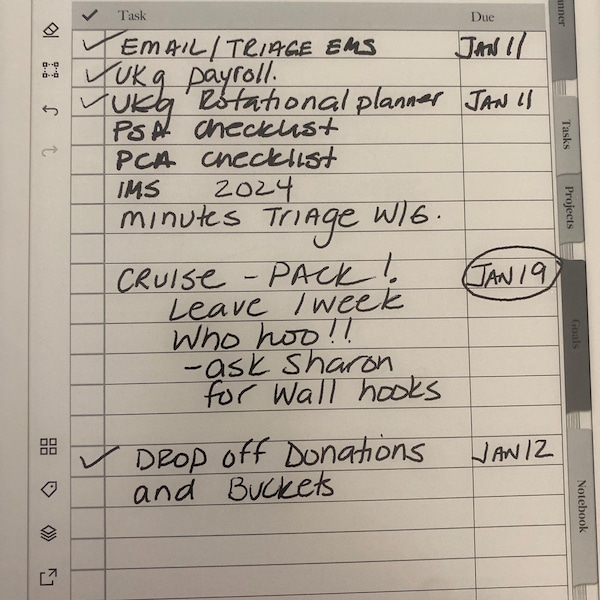 Task Due
✓ EMAIL/TRIAGE EMS JAN 11
✓ UKg payroll.
✓ UKg Rotational planner JAN 11
PSA checklist
PCA checklist
IMS 2024
minutes Triage W/G.
CRUISE - PACK! JAN 19
Leave 1 week
Who hoo!!
-ask Sharon
for Wall hooks
✓ DROP off Donations JAN 12
and Buckets
Tasks
Projects
Goals
Notebook